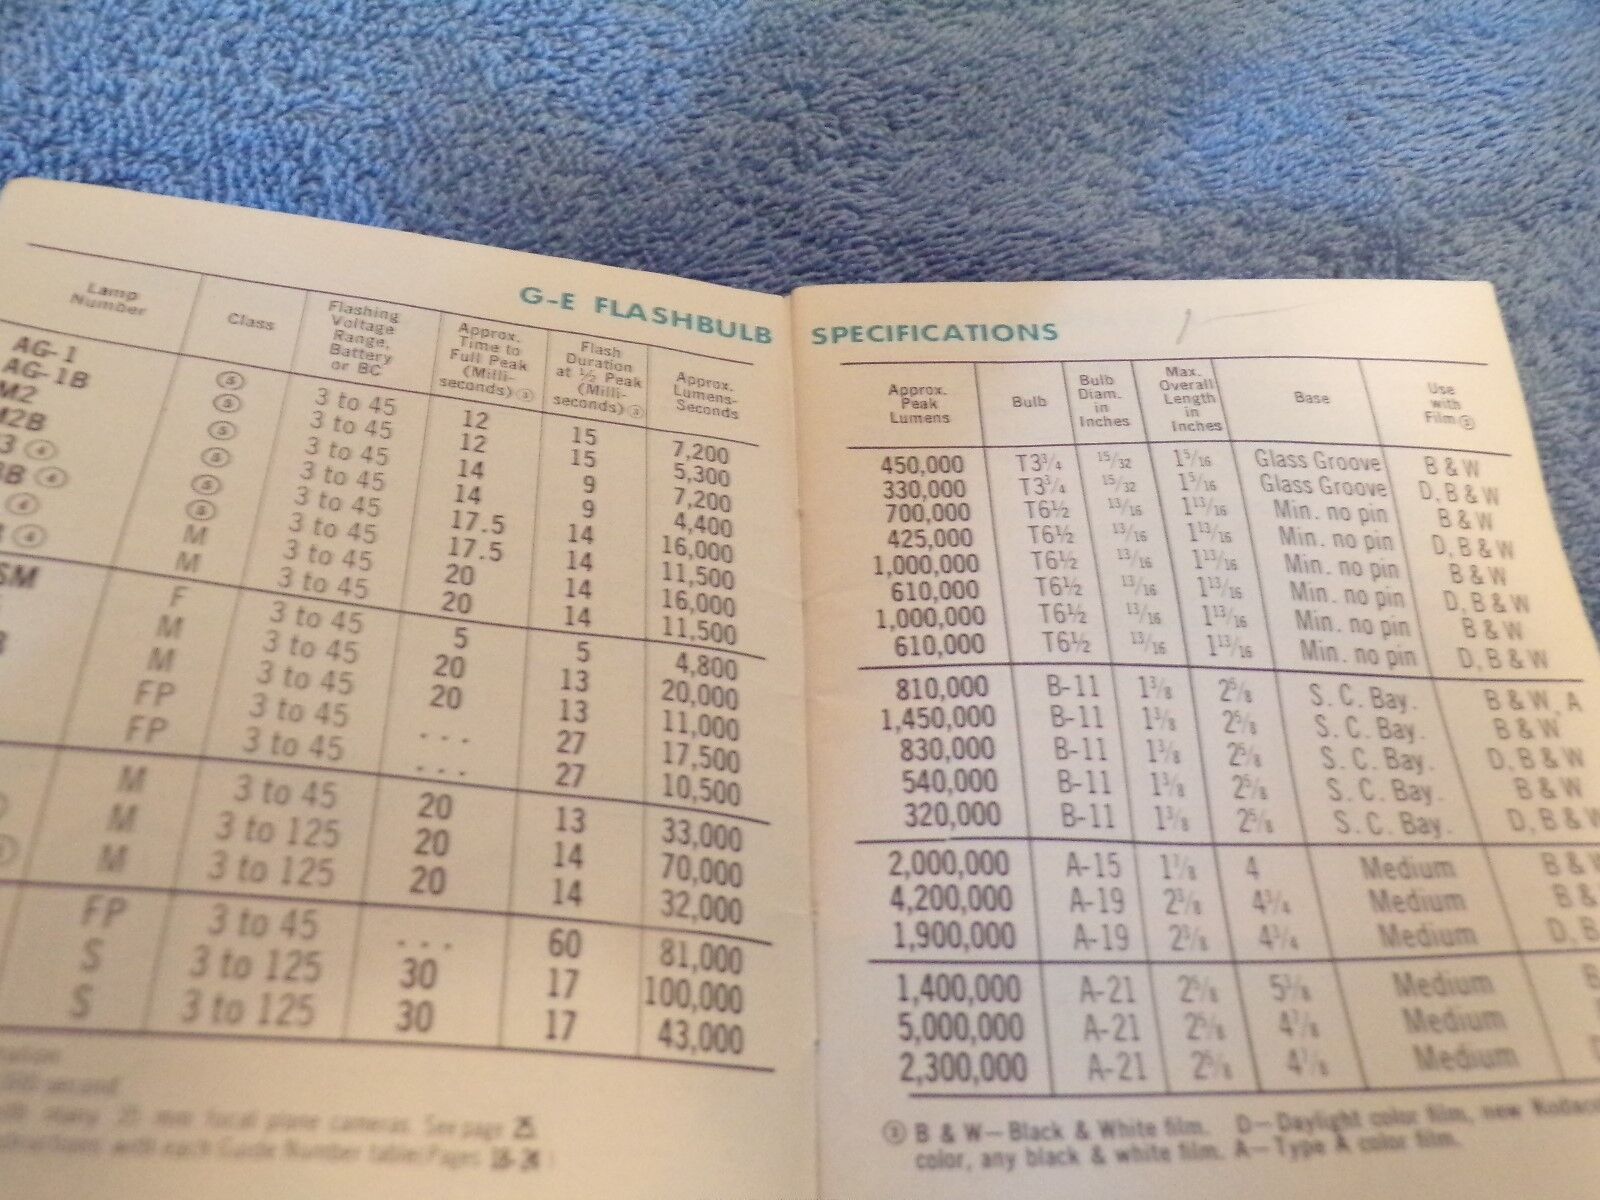 G-E FLASHBULB SPECIFICATIONS
Lamp Number Class Flashing Voltage Range, Battery or BC Approx. Time to Full Peak (Milli-seconds) ③ Flash Duration at ½ Peak (Milli-seconds) ③ Approx. Lumens-Seconds
AG-1 ⑤ 3 to 45 12 15 7,200
AG-1B ⑤ 3 to 45 12 15 5,300
M2 ⑤ 3 to 45 14 9 7,200
M2B ⑤ 3 to 45 14 9 4,400
3 ④ ⑤ 3 to 45 17.5 14 16,000
B ④ ⑤ 3 to 45 17.5 14 11,500
④ M 3 to 45 20 14 16,000
④ M 3 to 45 20 14 11,500
SM F 3 to 45 5 5 4,800
M 3 to 45 20 13 20,000
M 3 to 45 20 13 11,000
FP 3 to 45 ... 27 17,500
FP 3 to 45 ... 27 10,500
M 3 to 45 20 13 33,000
M 3 to 125 20 14 70,000
M 3 to 125 20 14 32,000
FP 3 to 45 ... 60 81,000
S 3 to 125 30 17 100,000
S 3 to 125 30 17 43,000
second
many 35 mm focal plane cameras. See page 25
with each Guide Number table (Pages
Approx. Peak Lumens Bulb Bulb Diam. in Inches Max. Overall Length in Inches Base Use with Film ②
450,000 T3¾ 15/32 1 5/16 Glass Groove B & W
330,000 T3¾ 15/32 1 5/16 Glass Groove D, B & W
700,000 T6½ 13/16 1 13/16 Min. no pin B & W
425,000 T6½ 13/16 1 13/16 Min. no pin D, B & W
1,000,000 T6½ 13/16 1 13/16 Min. no pin B & W
610,000 T6½ 13/16 1 13/16 Min. no pin D, B & W
1,000,000 T6½ 13/16 1 13/16 Min. no pin B & W
610,000 T6½ 13/16 1 13/16 Min. no pin D, B & W
810,000 B-11 1⅜ 2⅝ S. C. Bay. B & W, A
1,450,000 B-11 1⅜ 2⅝ S. C. Bay. B & W
830,000 B-11 1⅜ 2⅝ S. C. Bay. D, B & W
540,000 B-11 1⅜ 2⅝ S. C. Bay. B & W
320,000 B-11 1⅜ 2⅝ S. C. Bay. D, B & W
2,000,000 A-15 4 Medium B & W
4,200,000 A-19 2⅜ 4¾ Medium B &
1,900,000 A-19 2⅜ 4¾ Medium D, B
1,400,000 A-21 2⅝ Medium B
5,000,000 A-21 2⅝ 4⅞ Medium
2,300,000 A-21 2⅝ 4⅞ Medium
② B & W—Black & White film. D—Daylight color film, new Kodaco
color, any black & white film. A—Type A color film.